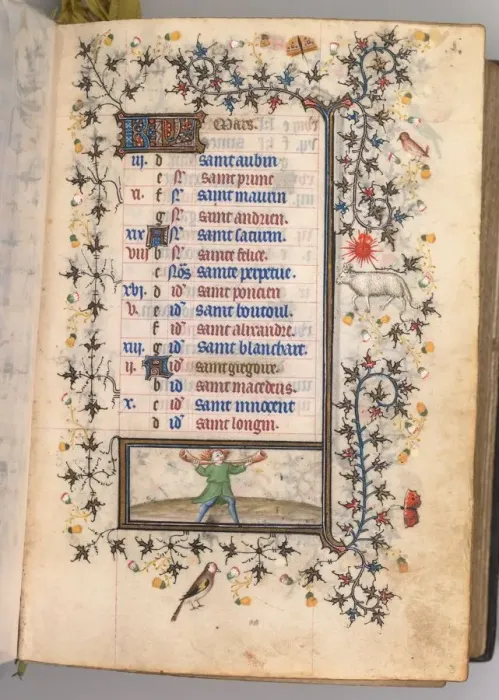 KL Mars.
iij. d saint aubin
e N. saint prime
vi. f N. saint maurin
g N. saint andrien.
xix A N. saint saturin.
viij b N. sainte felice.
c Nos sainte perpetue.
xvi. d id saint poncien
v. e id saint boutoul.
f id saint alixandre.
xiij. g id saint blanchart.
ij. A id saint gregoire.
b id saint macedens.
x. c id saint innocent
d id saint longin.